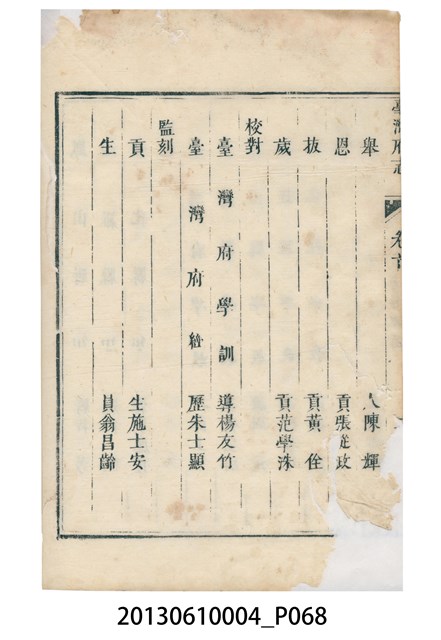 臺灣府志 卷首
舉人陳輝
恩貢張從政
拔貢黃佺
歲貢范學洙
校對
臺灣府學訓導楊友竹
臺灣府經歷朱士顯
監刻
貢生施士安
生員翁昌齡
20130610004_P068